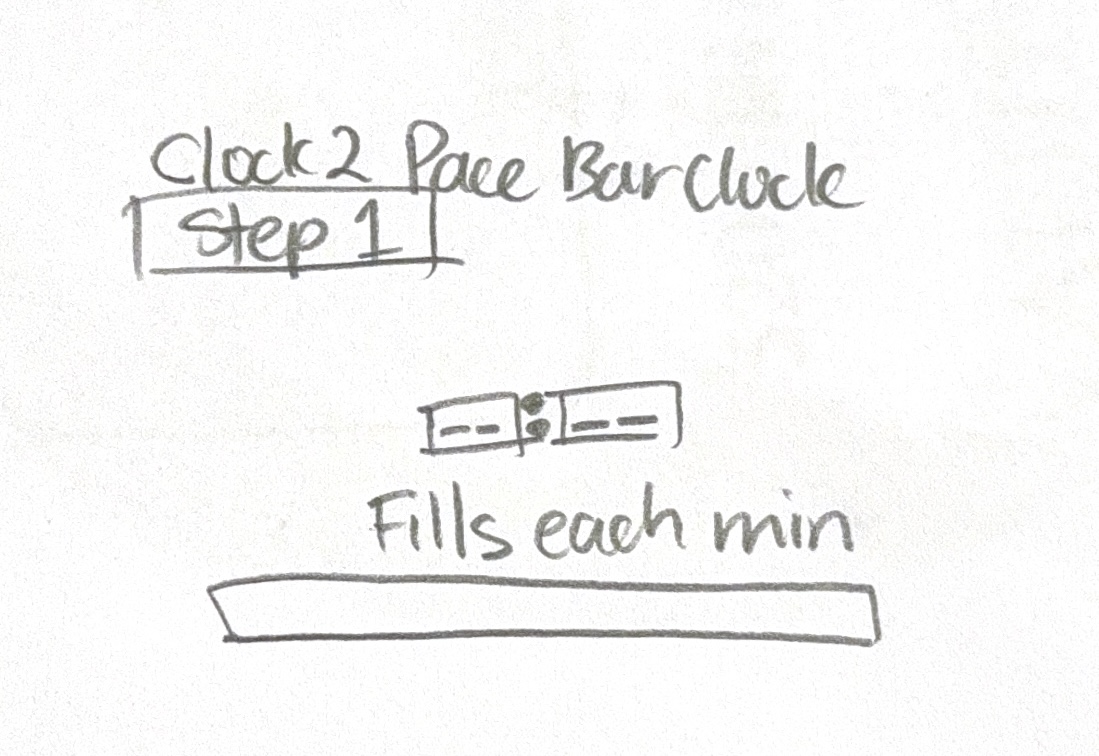 Clock 2 Pace Bar Clock
Step 1
-- : --
Fills each min